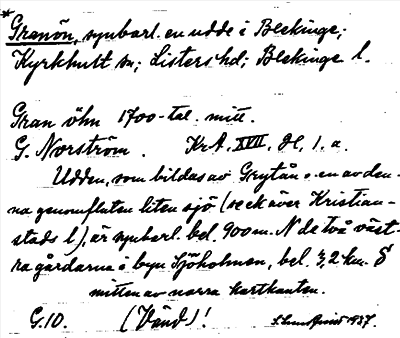 *Granön, synbarl. en udde i Blekinge;
Kyrkhult sn; Listers hd; Blekinge l.
Gran öhn 1700-tal. mitt.
G. Norström. KrA. XVII, 1. a.
Udden, som bildas av Grytån o. en av den-
na genomfluten liten sjö (se ek över Kristian-
stads l), är synbarl. bel. 900 m. N de två väst-
ra gårdarna i byn Sjöholmen, bel. 3,2 km. S
mitten av norra kartkanten.
G.10. (Vänd)! 1937.